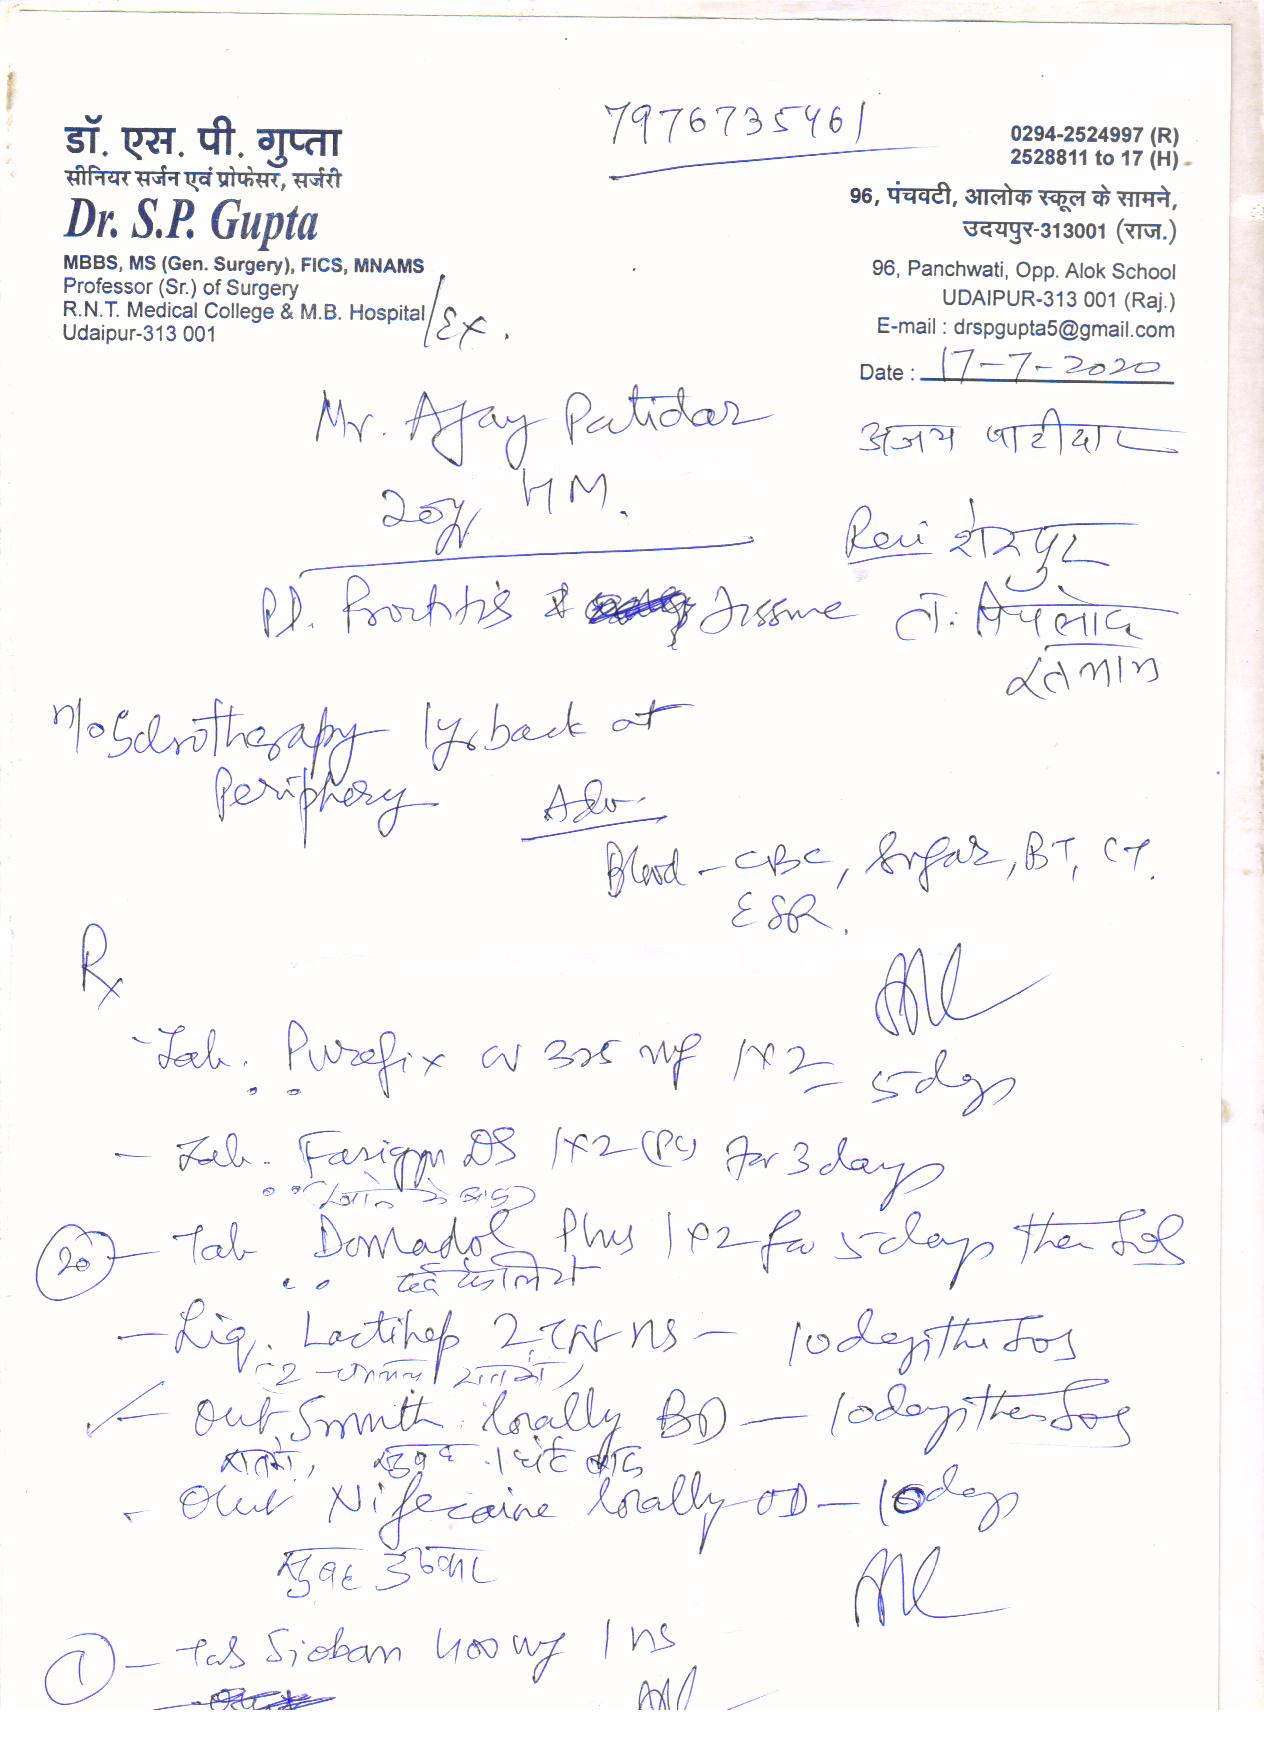 7976735461
डॉ. एस. पी. गुप्ता
सीनियर सर्जन एवं प्रोफेसर, सर्जरी
Dr. S.P. Gupta
MBBS, MS (Gen. Surgery), FICS, MNAMS
Professor (Sr.) of Surgery
R.N.T. Medical College & M.B. Hospital /Ex.
Udaipur-313 001
0294-2524997 (R)
2528811 to 17 (H)
96, पंचवटी, आलोक स्कूल के सामने,
उदयपुर-313001 (राज.)
96, Panchwati, Opp. Alok School
UDAIPUR-313 001 (Raj.)
E-mail : drspgupta5@gmail.com
Date : 17-7-2020
Mr. Ajay Patidar
अजय पाटीदार
20y HM.
शेरपुर
P.D. Proctitis & Fissure
रतलाम
H/o Sclrotherapy 1yr back at
Periphery
Adv.
Blood - CBC, Sugar, BT, CT.
ESR.
Rx
- Tab. Purefix CV 325 mg 1x2 5 days
- Tab. Fasigyn DS 1x2 (PC) for 3 days
(खाने के बाद)
20 - Tab Domadol Plus 1x2 for 5 days then SOS
दर्द के लिये
- Liq. Lactihep 2 TSF HS - 10 days then SOS
(2 चम्मच रात को)
- Oint. Smuth locally BD - 10 days then SOS
रात को, सुबह 1 घंटे बाद
- Oint Nifecaine locally OD - 10 days
सुबह उठकर
1 - Tab Sioban 400 mg 1 HS